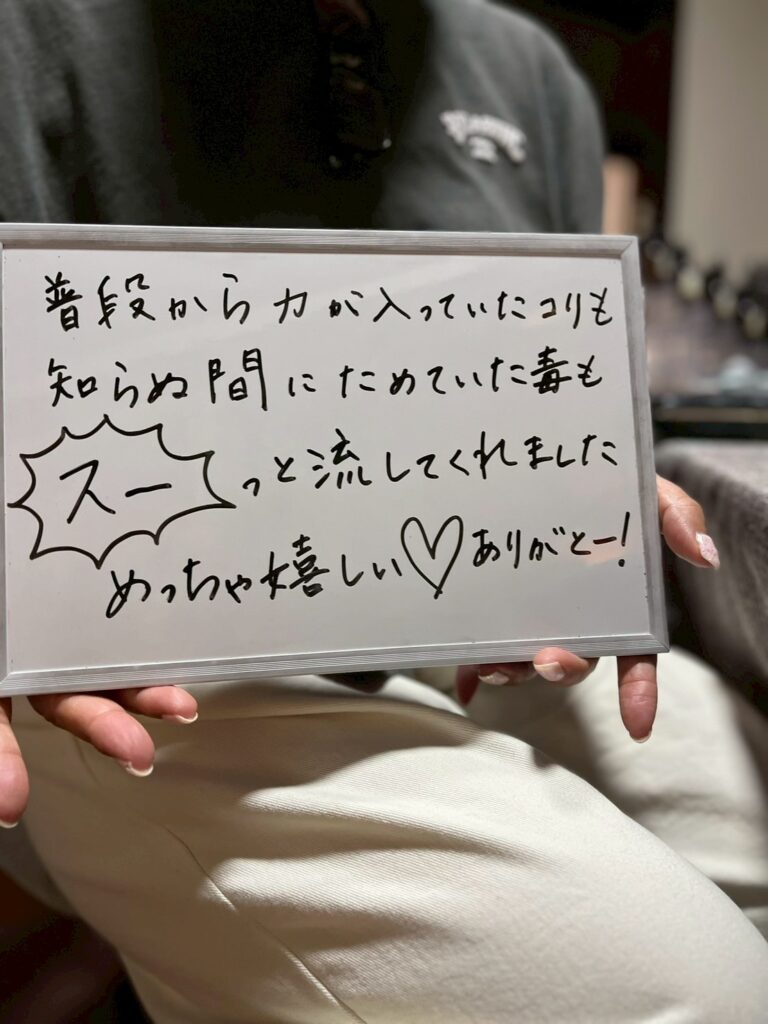 普段から力が入っていたコリも
知らぬ間にためていた毒も
スーっと流してくれました
めっちゃ嬉しい♡ありがとー!